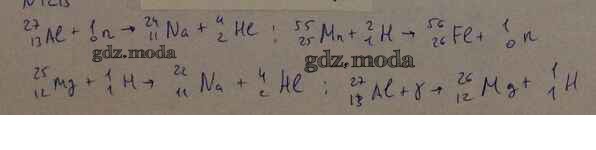 ²⁷₁₃Al + ¹₀n → ²⁴₁₁Na + ⁴₂He ; ⁵⁵₂₅Mn + ²₁H → ⁵⁶₂₆Fe + ¹₀n
gdz.moda
gdz.moda
²⁵₁₂Mg + ¹₁H → ²²₁₁Na + ⁴₂He ; ²⁷₁₃Al + γ → ²⁶₁₂Mg + ¹₁H